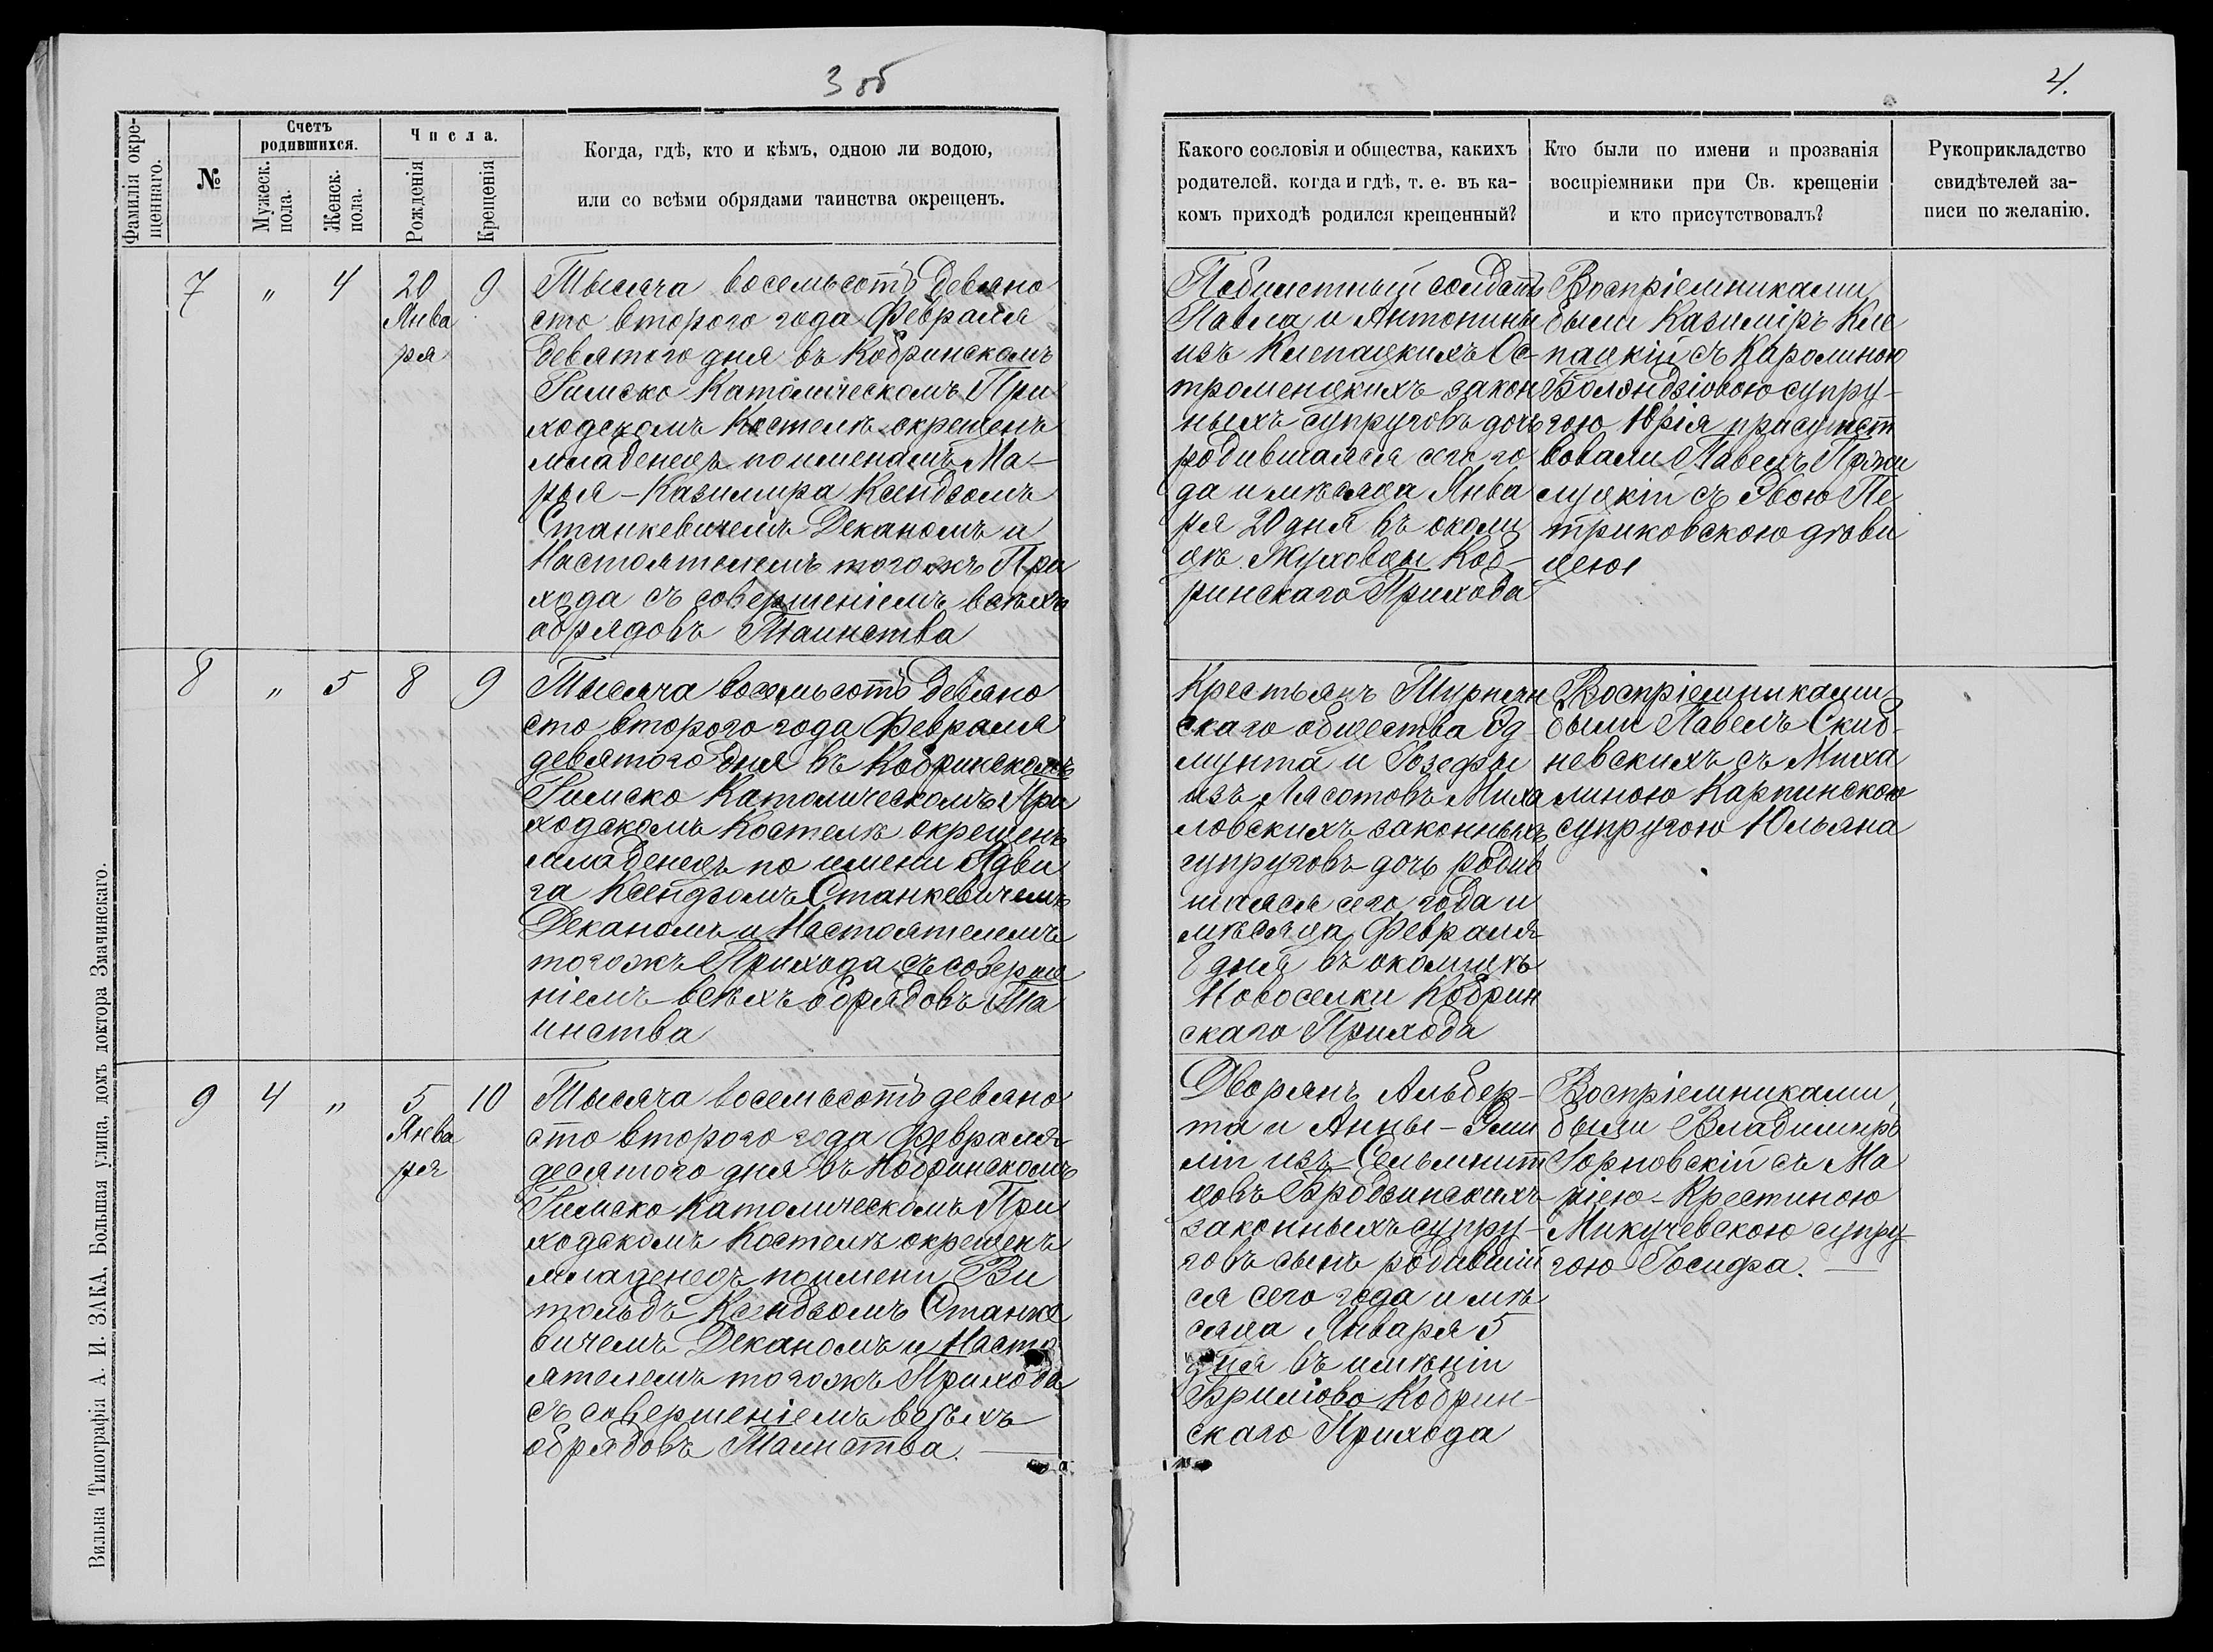 3 об
4.
Фамилія окре-
щеннаго.
№
Счетъ
родившихся.
Мужеск.
пола.
Женск.
пола.
Числа.
Рожденія
Крещенія
Когда, гдѣ, кто и кѣмъ, одною ли водою,
или со всѣми обрядами таинства окрещенъ.
Какого сословія и общества, какихъ
родителей, когда и гдѣ, т. е. въ ка-
комъ приходѣ родился крещенный?
Кто были по имени и прозванія
воспріемники при Св. крещеніи
и кто присутствовалъ?
Рукоприкладство
свидѣтелей за-
писи по желанію.
7 " 4 20 9
Янва
ря
Тысяча восемьсотъ девяно
сто второго года Февраля
девятого дня въ Кобринскомъ
Римско Католическомъ При
ходскомъ Костелѣ окрещенъ
младенецъ по именамъ Ма-
рыя-Казимира Ксендзомъ
Станкевичемъ Деканомъ и
Настоятелемъ тогожъ При
хода съ совершеніемъ всѣхъ
обрядовъ Таинства
Побилетный солдатъ
Павла и Антонины
изъ Клепацкихъ Ос-
троменцкихъ закон
ныхъ супруговъ дочь
родившаяся сего го
да и мѣсяца Янва
ря 20 дня въ околи
цѣ Жуховцы Коб-
ринскаго Прихода
Воспріемниками
были Казиміръ Кле
пацкій съ Каролиною
супру-
гою Юрія присутст
вовали Павелъ
съ Евою Пе
триковскою дѣви
цею
8 " 5 8 9
Тысяча восемьсотъ девяно
сто второго года Февраля
девятого дня въ Кобринскомъ
Римско Католическомъ При
ходскомъ Костелѣ окрещенъ
младенецъ по имени Ядви
га Ксендзомъ Станкевичемъ
Деканомъ и Настоятелемъ
тогожъ Прихода съ соверше
ніемъ всѣхъ обрядовъ Та
инства
Крестьянъ Турнян
скаго общества Эд
мунта и Іозефы
изъ Лясотовъ Миха
ловскихъ законныхъ
супруговъ дочь родив
шаяся сего года и
мѣсяца Февраля
8 дня въ околицѣ
Новоселки Кобрин
скаго Прихода
Воспріемниками
были Павелъ Скиб-
невскихъ съ Миха
линою Карпинскою
супругою Юльяна
9 4 " 5 10
Янва
ря
Тысяча восемьсотъ девяно
сто второго года Февраля
десятого дня въ Кобринскомъ
Римско Католическомъ При
ходскомъ Костелѣ окрещенъ
младенецъ поимени Ви
тольдъ Ксендзомъ Станке
вичемъ Деканомъ и Насто
ятелемъ тогожъ Прихода
съ совершеніемъ всѣхъ
обрядовъ Таинства.
Дворянъ Альбер-
та и Анны-Эми
ліи изъ Сельмит
цовъ Бродзинскихъ
законныхъ супру-
говъ сынъ родившій
ся сего года и мѣ
сяца Января 5
дня въ имѣніи
Брилёво Кобрин-
скаго Прихода
Воспріемниками
были Владимиръ
Горновскій съ Ма
ріею-Крестиною
Микучевскою супру
гою Іосифа.
Вильна Типографія А. И. ЗАКА, Большая улица, домъ доктора Змачинскаго.